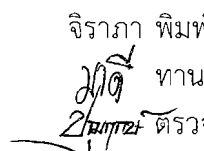 จิราภา พิมพ์
มาลี ทาน
ตรวจ